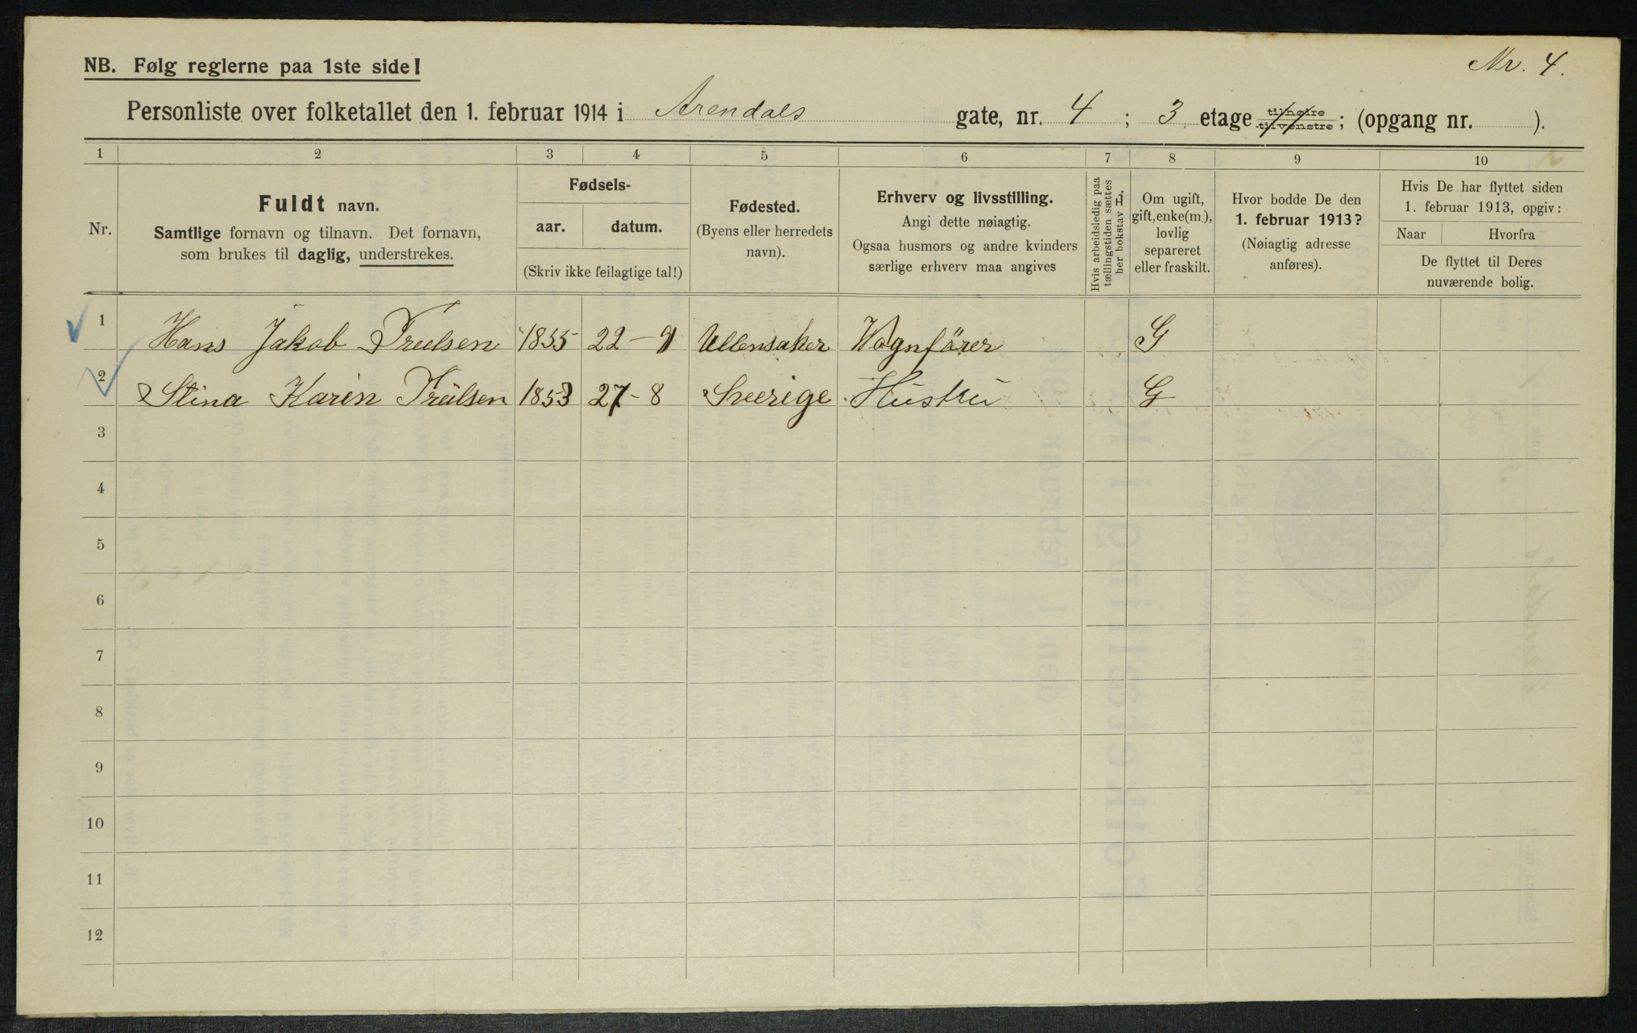 Nr. 4.
NB. Følg reglerne paa 1ste side!
Personliste over folketallet den 1. februar 1914 i Arendals gate, nr. 4 ; 3 etage tilhøire tilvenstre; (opgang nr. ).
1 2 3 4 5 6 7 8 9 10
Nr.
Fuldt navn.
Samtlige fornavn og tilnavn. Det fornavn,
som brukes til daglig, understrekes.
Fødsels-
aar. datum.
(Skriv ikke feilagtige tal!)
Fødested.
(Byens eller herredets
navn).
Erhverv og livsstilling.
Angi dette nøiagtig.
Ogsaa husmors og andre kvinders
særlige erhverv maa angives
Hvis arbeidsledig paa
tællingstiden sættes
her bokstav L.
Om ugift,
gift, enke(m.),
lovlig
separeret
eller fraskilt.
Hvor bodde De den
1. februar 1913?
(Nøiagtig adresse
anføres).
Hvis De har flyttet siden
1. februar 1913, opgiv:
Naar Hvorfra
De flyttet til Deres
nuværende bolig.
1 Hans Jakob 1855 22-9 Ullensaker Vognförer G
2 Stina Karin 1853 27-8 Sverige Hustru G
3
4
5
6
7
8
9
10
11
12